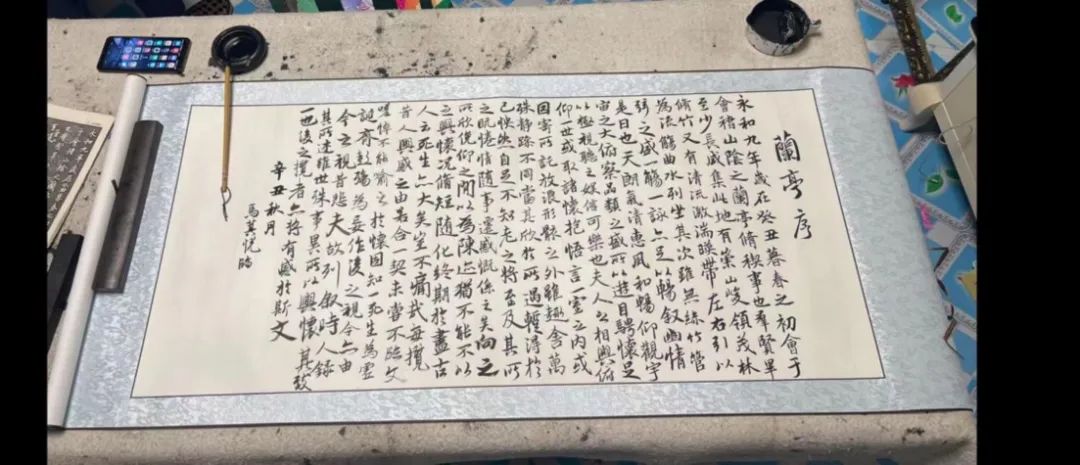 蘭亭序
永和九年歲在癸丑暮春之初會于
會稽山陰之蘭亭脩稧事也羣賢畢
至少長咸集此地有崇山峻領茂林
脩竹又有清流激湍暎帶左右引以
為流觴曲水列坐其次雖無絲竹管
弦之盛一觴一詠亦足以暢叙幽情
是日也天朗氣清惠風和暢仰觀宇
宙之大俯察品類之盛所以遊目騁懷足
以極視聽之娛信可樂也夫人之相與俯
仰一世或取諸懷抱悟言一室之內或
因寄所託放浪形骸之外雖趣舍萬
殊静躁不同當其欣於所遇暫得於
己怏然自足不知老之將至及其所
之既惓情隨事遷感慨係之矣向之
所欣俛仰之閒以為陳迹猶不能不以
之興懷況脩短隨化終期於盡古
人云死生亦大矣豈不痛哉每攬
昔人興感之由若合一契未嘗不臨文
嗟悼不能喻之於懷固知一死生為虛
誕齊彭殤為妄作後之視今亦由
今之視昔悲夫故列叙時人錄
其所述雖世殊事異所以興懷其致
一也後之攬者亦將有感於斯文
辛丑秋月
馬英悅臨